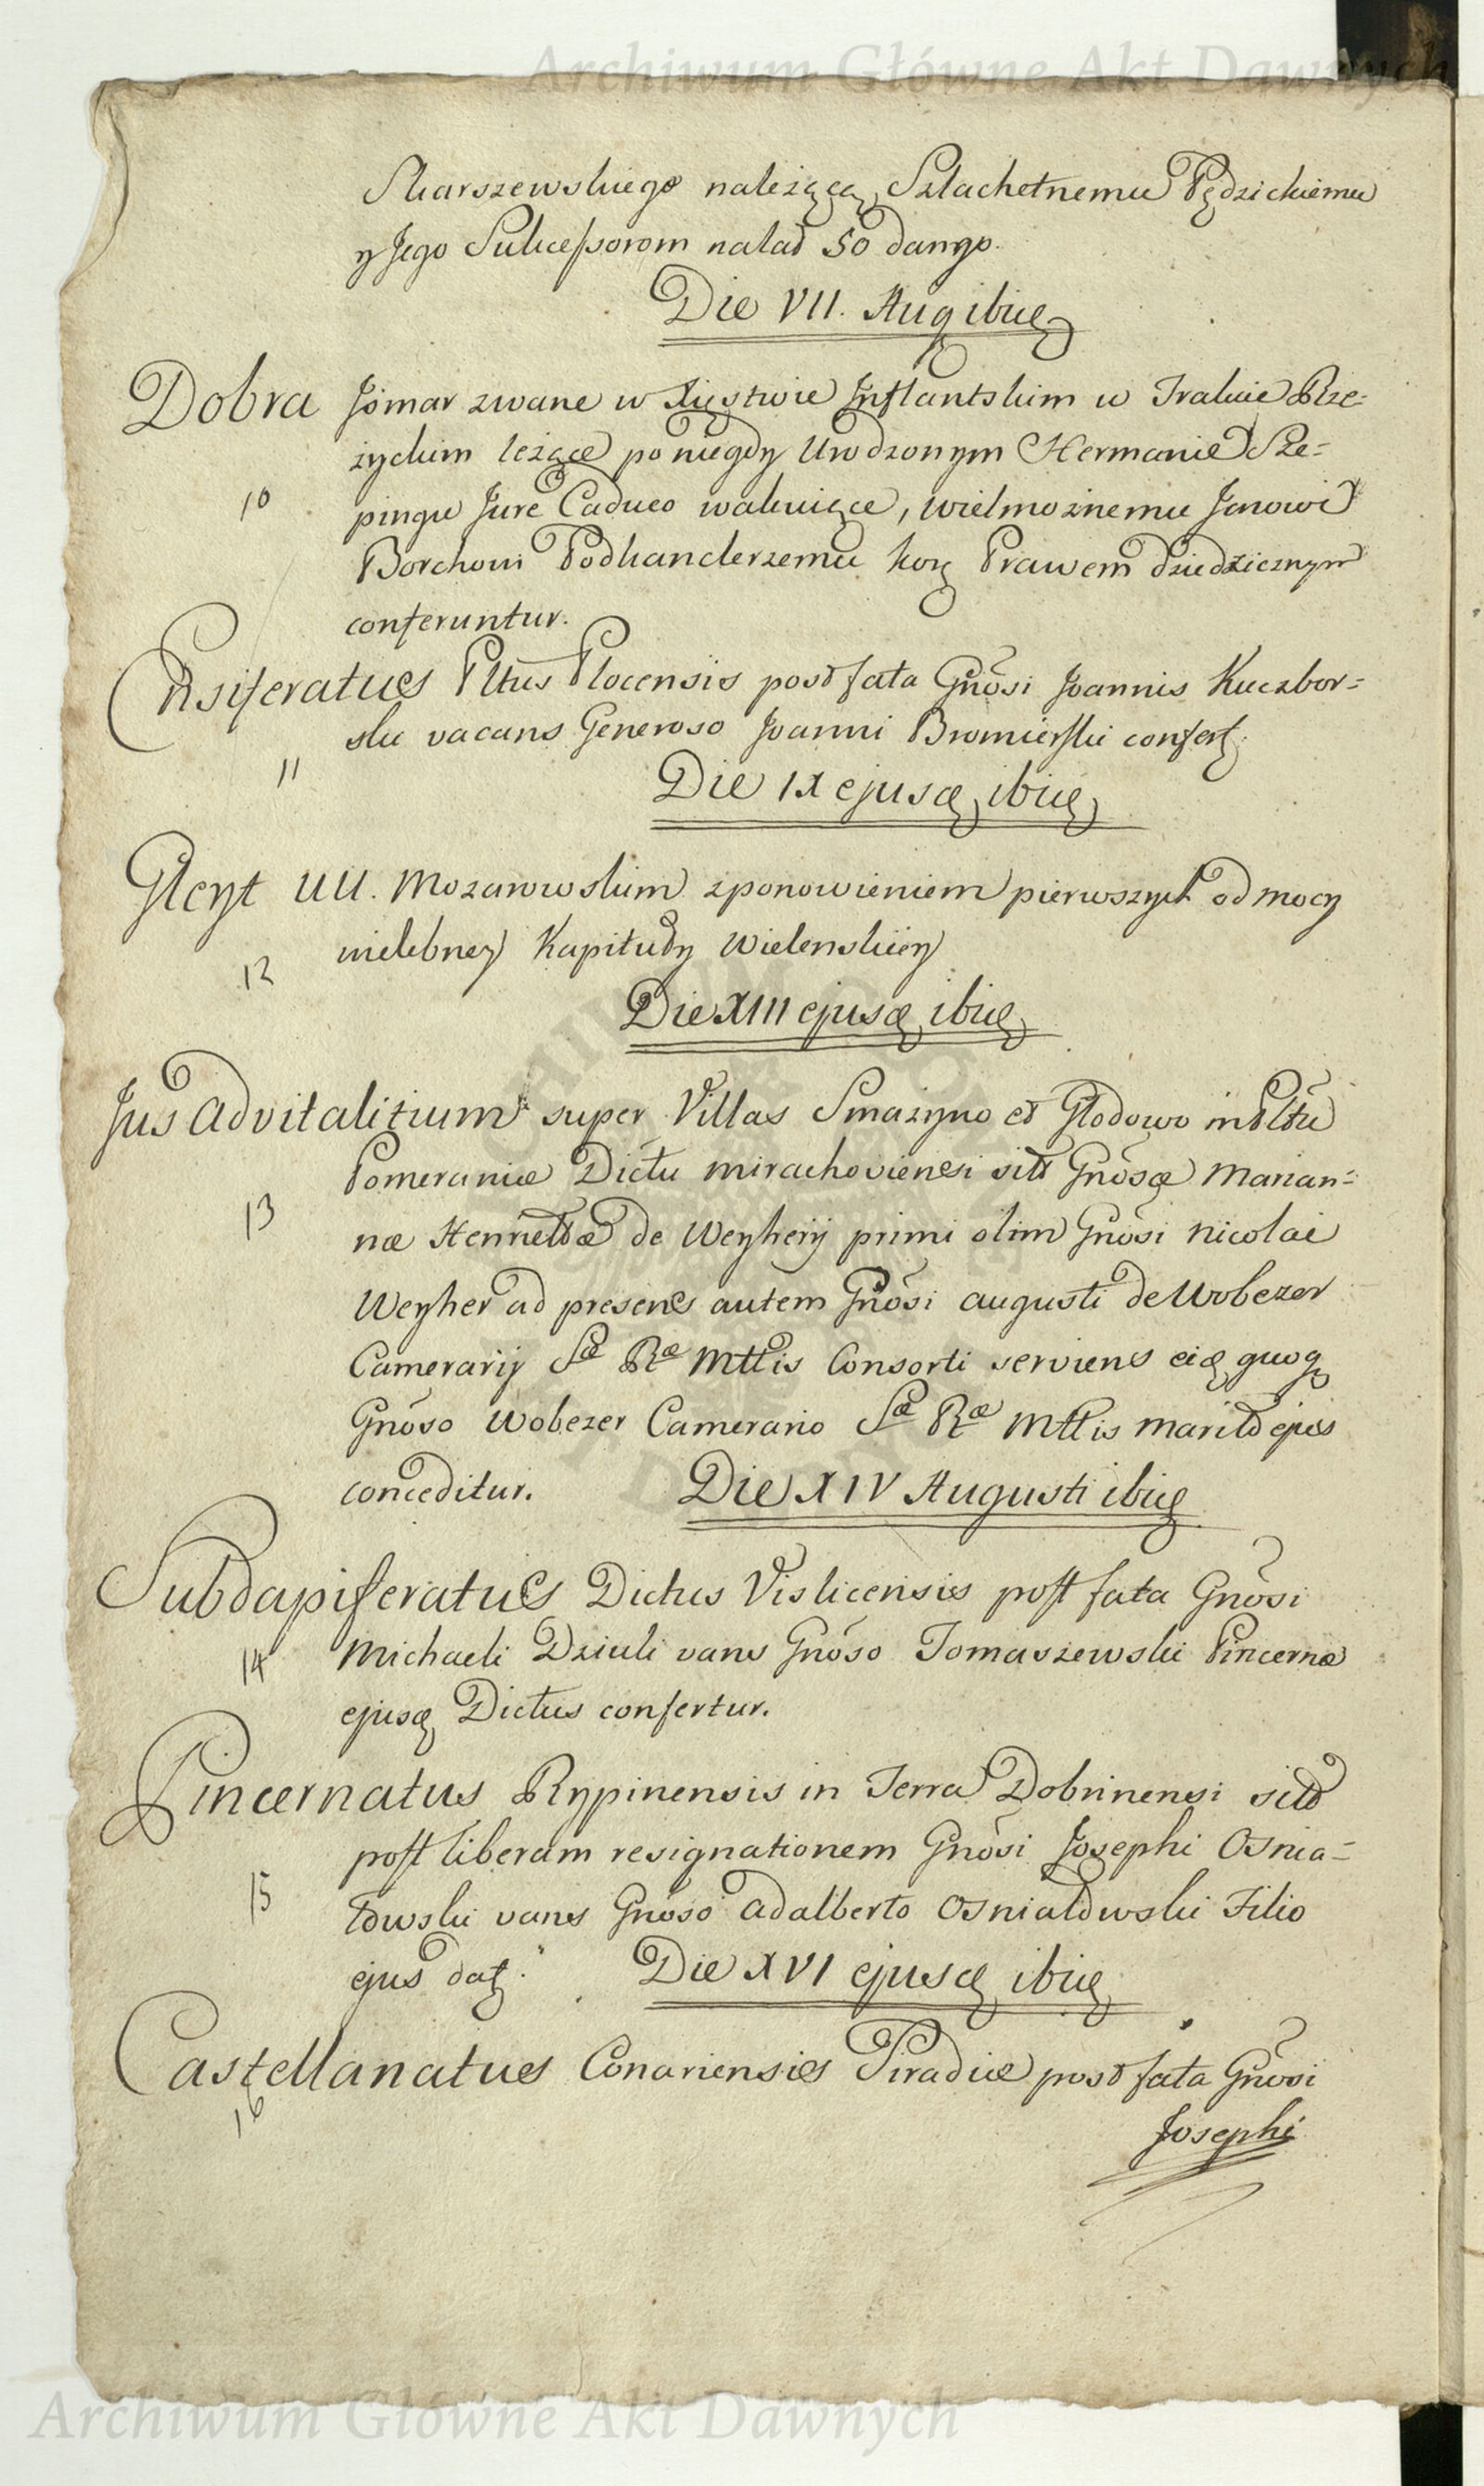 Archiwum Główne Akt Dawnych
Skarszewskiego należącą Szlachetnemu Pędzickiemu
y Jego Sukcessorom na lat 50 dango.
Die VII. Aug ibid
Dobra Jómar zwane w Xięstwie Inflantskim w Trakcie Rze=
życkim leżące po niegdy Urodzonym Hermanie Sze=
10 pingu Jure Caduco wakuiące, Wielmożnemu Janowi
Borchowi Podkanclerzemu Kor Prawem Dziedzicznym
conferuntur.
Ensiferatus Pltus Plocensis post fata Gnosi Joannis Kuczbor=
ski vacans Generoso Joanni Bromierski confert
11 Die IX ejusd ibid
Gleyt UU. Mozarowskim z ponowieniem pierwszych od mocy
wielebney Kapituły Wielenskiey
12
Die XIII ejusd ibid
Jus advitalitium super Villas Smazyno et Głodowo in Pltu
Pomeraniæ Dictu mirachoviensi sitt Gnosæ Marian=
13
næ Henriettæ de Weyhery primi olim Gnosi Nicolai
Weyher ad presens autem Gnosi Augusti de Wobezer
Camerarij Sæ Ræ Mttis Consorti serviens eid quoq
Gnoso Wobezer Camerario Sæ Ræ Mttis marito ejus
conceditur. Die XIV Augusti ibid
Subdapiferatus Dictus Vislicensis post fata Gnosi
14 Michaeli Dziuli vans Gnoso Tomaszewski Pincernæ
ejusd Dictus confertur.
Pincernatus Rypinensis in Terra Dobrinensi sitt
post liberam resignationem Gnosi Josephi Osnia=
15
towski vans Gnoso Adalberto Osniatowski Filio
ejus dat. Die XVI ejusd ibid
Castellanatus Conariensis Siradiæ post fata Gnosi
16
Josephi
Archiwum Główne Akt Dawnych